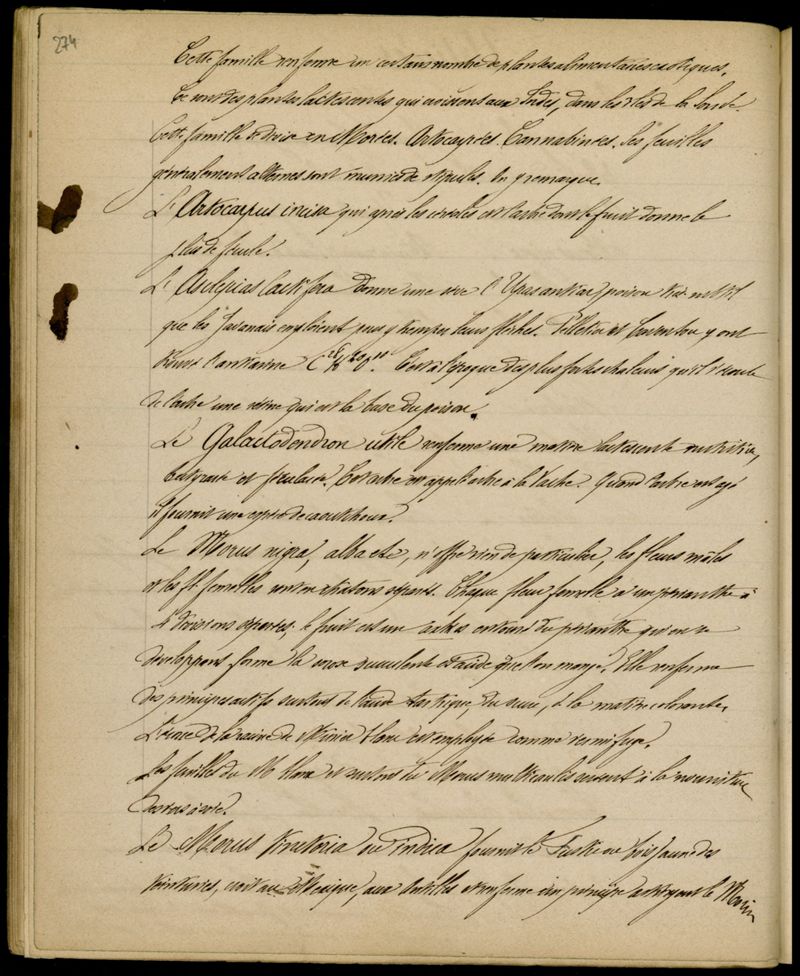 274
Cette famille renferme un certain nombre de plantes alimentaires exotiques,
Ce sont des plantes lactescentes qui croissent aux Indes, dans les îles de la Sonde.
Cette famille se divise en Morées. Artocarpées. Cannabinées. Les feuilles
généralement alternes sont munies de stipules. On y remarque.
L'Artocarpus incisa qui après les céréales est l'arbre dont le fruit donne le
plus de fécule.
L'Asclepias lactifera donne une sève l'Upas antiar, poison très
que les Javanais emploient pour y tremper leurs flèches. Pelletier et Caventou y ont
trouvé l'antiarine C H O. C'est à l'époque des plus fortes chaleurs qu'il s'écoule
de l'arbre une résine qui est la base du poison.
Le Galactodendron utile renferme une matière lactescente nutritive,
et féculente. Cet arbre est appelé arbre à la Vache. Quand l'arbre est âgé
il fournit une espèce de caoutchouc.
Le Morus nigra, alba etc, n'offre rien de particulier, les fleurs mâles
et les fl. femelles sont en chatons séparés. Chaque fleur femelle a un périanthe à
4 divisions séparées, le fruit est un entouré du périanthe qui en se
développant forme la succulente acide que l'on mange. Elle renferme
des principes actifs surtout de l'acide tartrique, du sucre, & la matière colorante.
L'écorce de la racine de est employée comme vermifuge.
Les feuilles du M. et surtout du Morus multicaulis servent à la nourriture
des vers à soie.
Le Morus tinctoria ou indica fournit le Fustic ou bois jaune des
teintures, croît au Mexique, aux Antilles et renferme un principe astringent le Morin